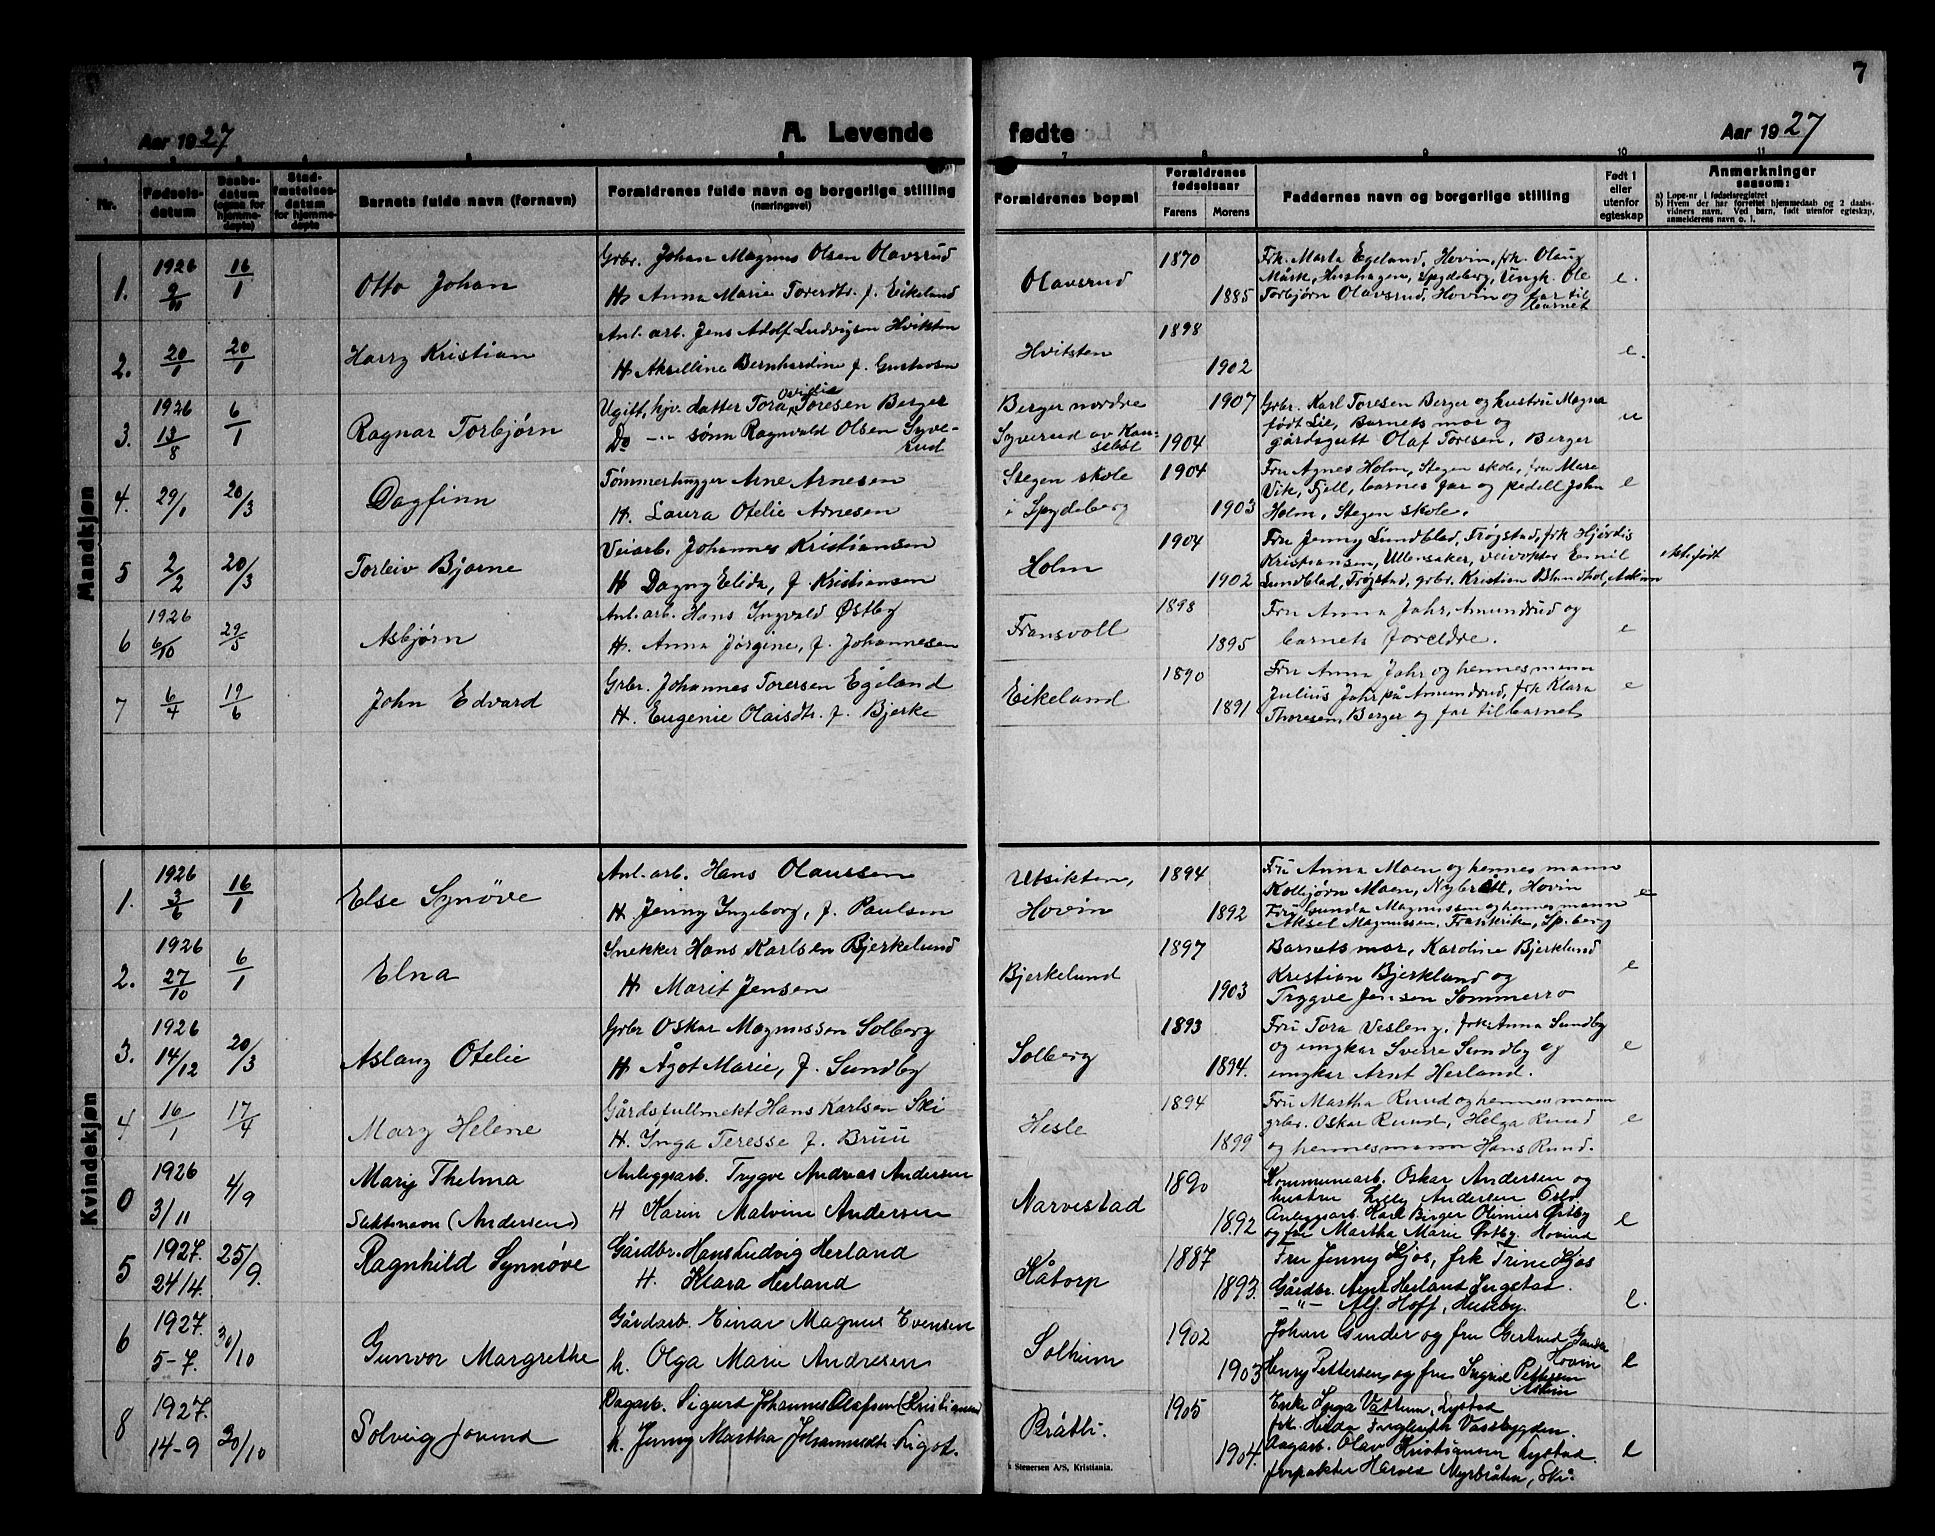 7
Aar 1927 A. Levende fødte Aar 1927
Nr. Fødselsdatum Daabsdatum (ogsaa for hjemmedøpte) Stadfæstelsesdatum for hjemmedøpte Barnets fulde navn (fornavn) Formldrenes fulde navn og borgerlige stilling (næringsvei)
7 8 9 10 11
Formldrenes bopæl Formldrenes fødselsaar Farens Morens Faddernes navn og borgerlige stilling Født i eller utenfor egteskap Anmerkninger saasom:
a) Løpe-nr i fødselsregistret
b) Hvem der har forrettet hjemmedaab og 2 daabsvidners navn. Ved barn, født utenfor egteskap, anmelderens navn o. l.
Mandkjøn
1. 1926 9/10 16/1 Otto Johan
Grbr. Johan Magnus Olsen Olavsrud
H. Anna Marie Toresdtr. f. Eikeland
Olavsrud 1870 1885
Frk. Marta Egeland, Hovin, frk Olaug
Mårk, Hushagen, Spydeberg, Ungk. Ole
Torbjørn Olavsrud, Hovin og far til
barnet
e.
2. 20/1 20/1 Harry Kristian
Anl. arb. Jens Adolf Ludvigsen Hvitsten
H. Akselline Bernhardine f. Gustavsen
Hvitsten 1898 1902 e.
3. 1926 13/8 6/1 Ragnar Torbjørn
Ugift, hjv. datter Tora Ovidia Toresen Berger
Do -"- sønn Ragnvald Olsen Syverud
Berger nordre 1907
Syverud av 1904
Grbr. Karl Toresen Berger og hustru Magna
født Lie, Barnets mor og
gårdsgutt Olaf Toresen, Berger
u
4. 29/1 20/3 Dagfinn
Tømmerhugger Arne Arnesen
H. Laura Otelie Arnesen
Stegen skole 1904
i Spydeberg 1903
Fru Agnes Holm, Stegen skole, fru Mare
Vik, Fjell, barnes far og pedell John
Holm, Stegen skole.
e
5 2/2 20/3 Torleiv Bjarne
Veiarb. Johannes Kristiansen
H Dagny Elida, f. Kristiansen
Holm 1904 1902
Fru Jenny Lundblad, Trøgstad, frk Hjørdis
Kristiansen, Ullensaker, veivokter Emil
Lundblad, Trøgstad, grbr. Kristian Blundhol, Askim
ektefødt
6 1926 6/10 29/5 Asbjørn
Anl. arb. Hans Ingvald Østby
H. Anna Jørgine, f. Johannesen
Fransvoll 1898 1895
Fru Anna Jahr, Amundrud og
barnets foreldre.
e
7 6/4 19/6 John Edvard
Grbr. Johannes Toresen Egeland
H. Eugenie Olaisdtr. f. Bjerke
Eikeland 1890 1891
Fru Anna Jahr og hennes mann
Julius Jahr på Amundrud, frk Klara
Thoresen, Berger og far til barnet
e
Kvindekjøn
1. 1926 3/6 16/1 Else Synøve
Anl. arb. Hans Olaussen
H Jenny Ingeborg, f. Paulsen
Utsikten, 1894
Hovin 1892
Fru Anna Moen og hennes mann
Kolbjørn Moen, Nybrått, Hovin
Fru Gunda Magnussen og hennes mann
Aksel Magnussen, Frankrike, Sp.berg
e
2. 1926 27/10 6/1 Elna
Snekker Hans Karlsen Bjerkelund
H Marit Jensen
Bjerkelund 1897 1903
Barnets mor, Karoline Bjerklund
Kristian Bjerkland og
Trygve Jensen Sommerro
e
3. 1926 14/12 20/3 Aslaug Otelie
Grbr Oskar Magnussen Solberg
H Ågot Marie, f. Sundby
Solberg 1893 1894.
Fru Tora Vesleng, frk Anna Sundby
og ungkar Sverre Sundby og
ungkar Arnt Herland.
e
4 16/1 17/4 Mary Helene
Gårdsfullmekt Hans Karlsen Ski
H. Inga Teresse f. Bruu
Hesle 1894 1899
Fru Martha Ruud og hennes mann
grbr. Oskar Ruud, Helga Ruud
og hennes mann Hans Ruud.
e
0 1926 3/11 4/9 Mary Thelma
Slektsnavn (Andersen)
Anleggsarb. Trygve Andreas Andersen
H Karin Malvine Andersen
Narvestad 1890 1892
Kommunearb. Oskar Andersen og
hustru Lilly Andersen Oslo.
Anleggsarb. Karl Birger Olinius Østby
og fru Martha Marie Østby, Hovind
e
5 1927. 24/4. 25/9. Ragnhild Synnøve
Gårdbr. Hans Ludvig Herland
H. Klara Herland
Kåtorp 1887 1893.
Fru Jenny Kjos, frk Trine Kjos
Gårdbr. Arnt Herland Ingstad.
-"- Alf Hoff, Huseby.
e.
6 1927. 5-7. 30/10 Gunvor Margrethe
Gårdarb. Einar Magnus Evensen
h. Olga Marie Andresen
Solheim 1902 1903
Johan Gunder og fru Gertrud Gunder
Hovin
Henry Pettersen og fru Ingrid Pettersen
Askim
e
8 1927. 14-9 30/10 Solveig Jorund
Dagarb. Sigurd Johannes Olafsen (Kristiansen)
h. Jenny Martha Johannesdtr. Ligot.
Bråtli 1905 1904.
Enke Inga Vattum, Lystad
frk. Hilda Vassbygden.
Dagarb. Olav Kristiansen Lystad.
forpakter Myrbråten, Ski.
e
Stenersen A/S, Kristiania.